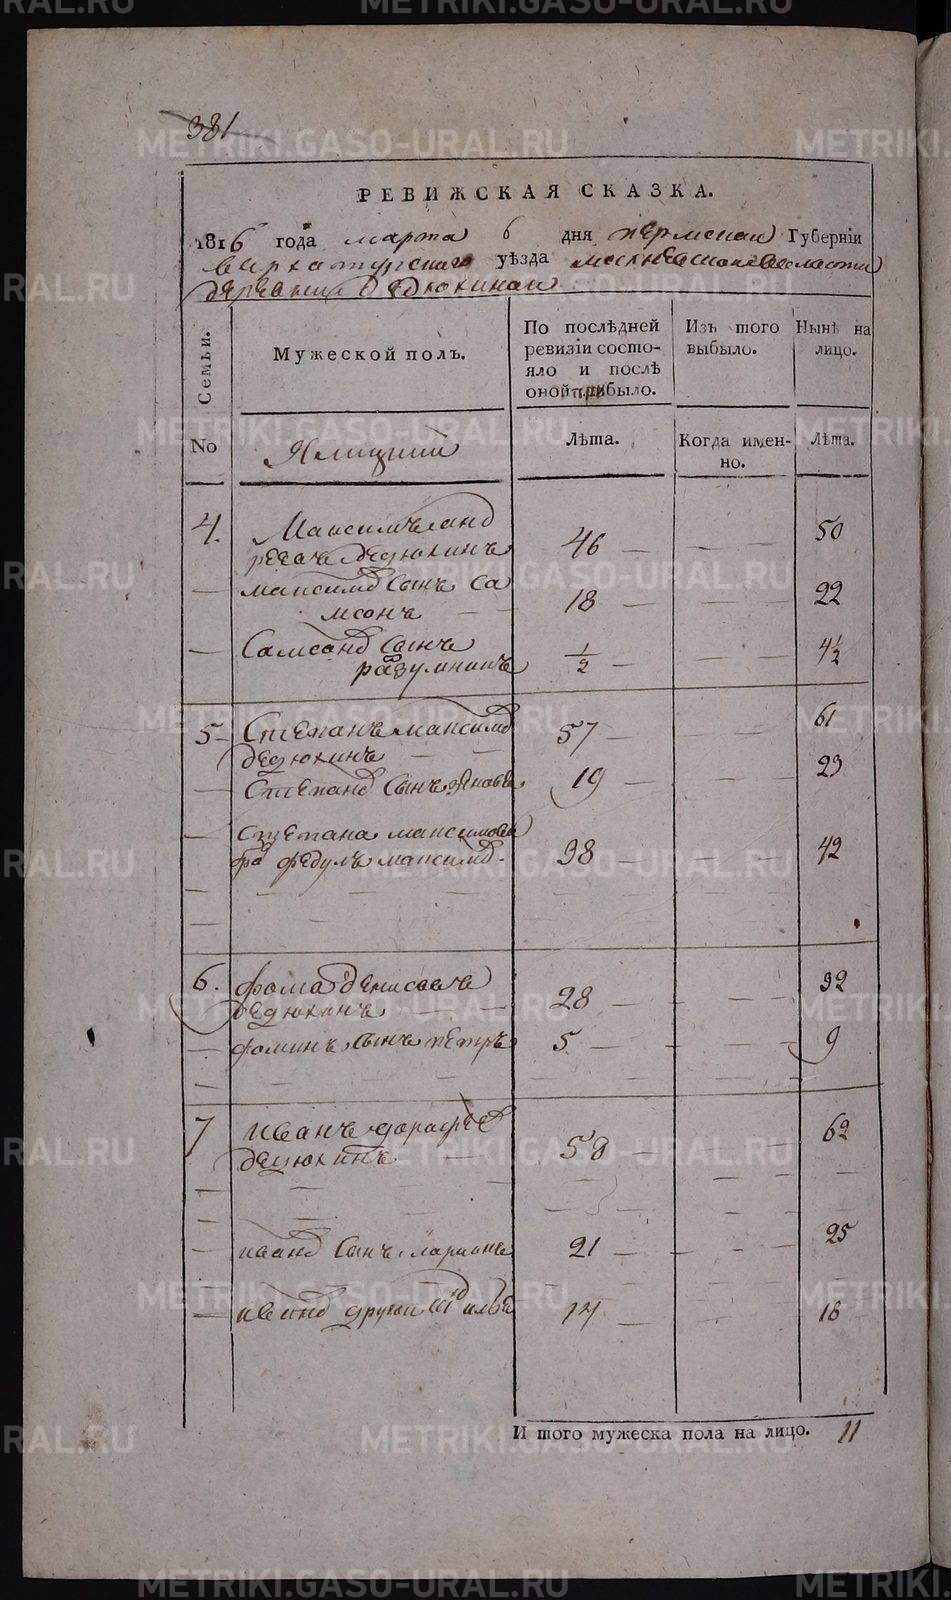 381
РЕВИЖСКАЯ СКАЗКА.
1816 года марта 6 дня пермской Губерніи
верхотурскаго уѣзда
деревни Дедюхиной
Семьи.
Мужеской полъ.
По послѣдней ревизіи состо-
яло и послѣ
оной прибыло.
Изъ того
выбыло.
Нынѣ на
лицо.
No
Ямщики
Лѣта.
Когда имен-
но.
Лѣта.
4. Максимъ анд
реевъ дедюхинъ 46 50
максимов сынъ са
мсонъ 18 22
Самсонов сынъ
разумникъ 1/2 4 1/2
5 Степанъ максимов
дедюхинъ 57 61
Степанов сынъ 19 23
степана максимова
бра федулъ максимов. 38 42
6. фома денисовъ
дедюхинъ 28 32
фоминъ сынъ петръ 5 9
7 иванъ дорофѣев
дедюхинъ 58 62
иванов сынъ ларионъ 21 25
иванов другой илья 14 18
И того мужеска пола на лицо. 11
METRIKI.GASO-URAL.RU